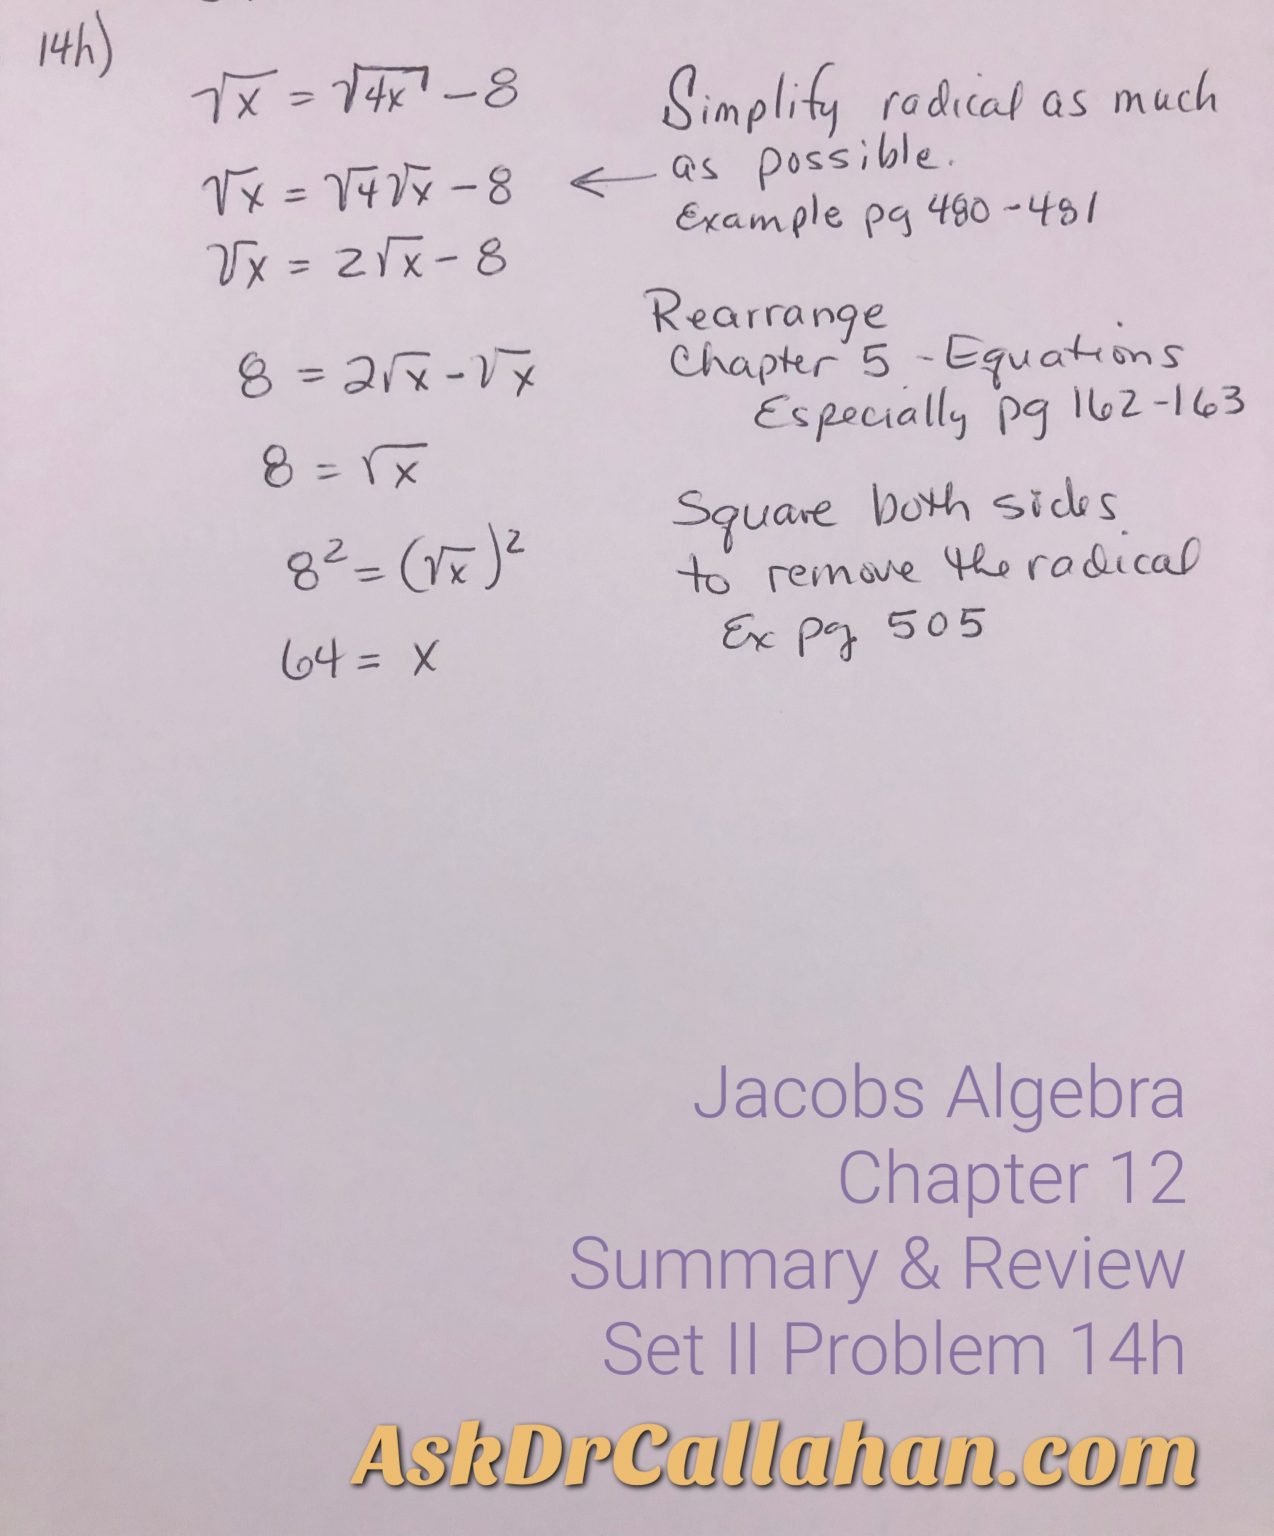 14h)
√x = √4x - 8
Simplify radical as much
as possible.
√x = √4√x - 8 ←
Example pg 480-481
√x = 2√x - 8
Rearrange
Chapter 5 - Equations
8 = 2√x - √x
Especially pg 162-163
8 = √x
Square both sides
to remove the radical
8² = (√x)²
Ex pg 505
64 = x
Jacobs Algebra
Chapter 12
Summary & Review
Set II Problem 14h
AskDrCallahan.com